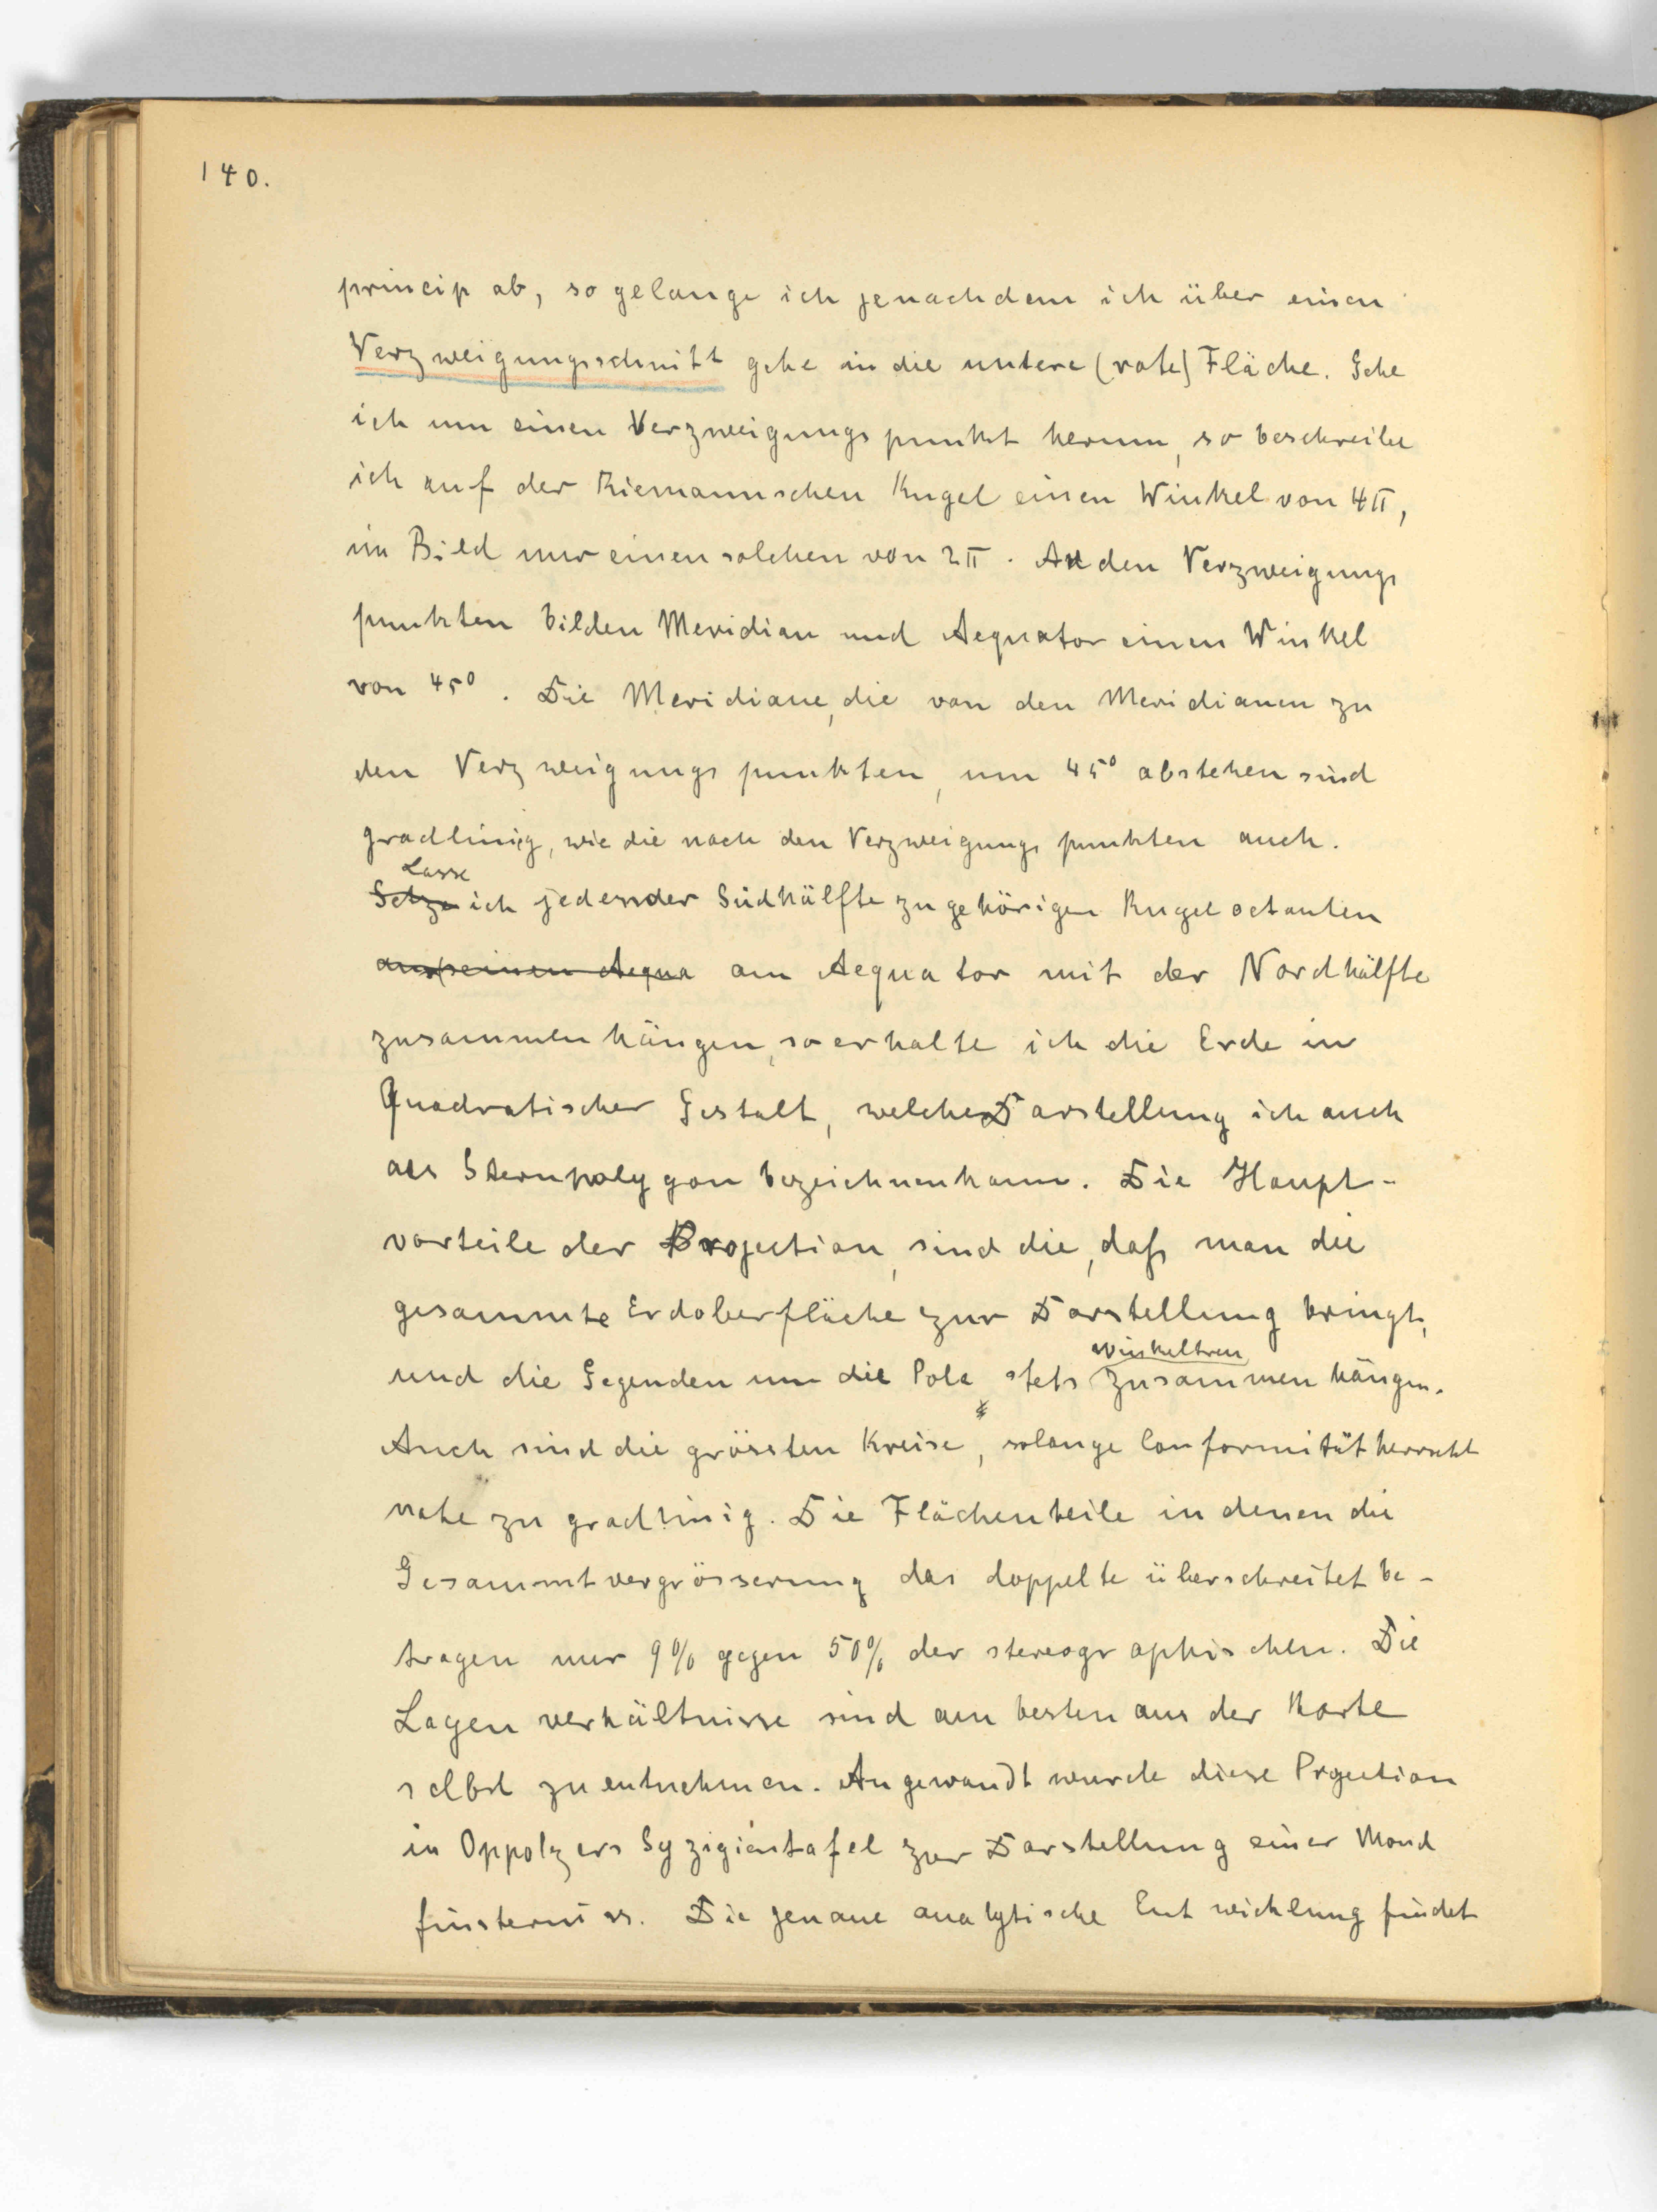 140.
princip ab, so gelange ich jenachdem ich über einen
Verzweigungsschnitt gehe in die untere (rote) Fläche. Gehe
ich um einen Verzweigungspunkt herum, so beschreibe
ich auf der Riemannschen Kugel einen Winkel von 4π,
im Bild nur einen solchen von 2π. An den Verzweigungs
punkten bilden Meridian und Aequator einen Winkel
von 45°. Die Meridiane, die von den Meridianen zu
den Verzweigungspunkten, um 45° abstehen sind
gradlinig, wie die nach den Verzweigungspunkten auch.
Lasse
Setze ich jeden der Südhälfte zugehörigen Kugeloctanten
seinen Aequa am Aequator mit der Nordhälfte
zusammenhängen, so erhalte ich die Erde in
Quadratischer Gestalt, welche Darstellung ich auch
als Sternpolygon bezeichnen kann. Die Haupt-
vorteile der Projection, sind die, daß man die
gesammte Erdoberfläche zur Darstellung bringt,
winkeltreu
und die Gegenden um die Pole stets zusammenhängen.
Auch sind die grössten Kreise, solange Conformität herrscht
nahe zu gradlinig. Die Flächenteile in denen die
Gesammtvergrösserung das doppelte überschreitet be-
tragen nur 9% gegen 50% der stereographischen. Die
Lagenverhältnisse sind am besten aus der Karte
selbst zu entnehmen. Angewandt wurde diese Projection
in Oppolzers Syzigientafel zur Darstellung einer Mond
finsterniss. Die jenaue analytische Entwicklung findet